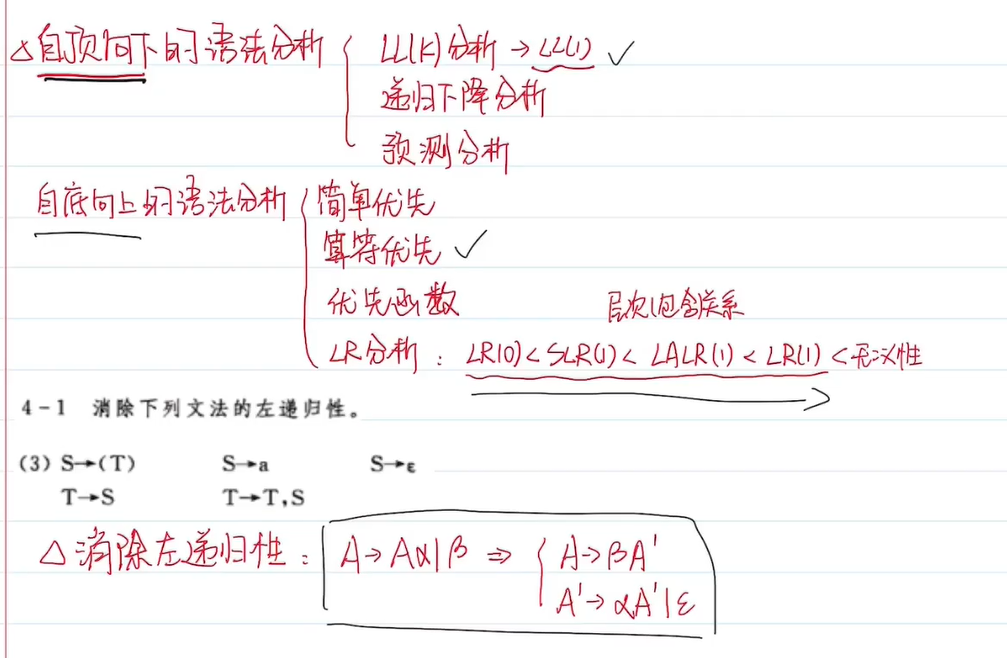 △自顶向下的语法分析 { LL(k)分析→LL(1) ✓
递归下降分析
预测分析
自底向上的语法分析 { 简单优先
算符优先 ✓
优先函数
层次(包含关系
LR分析: LR(0)<SLR(1)<LALR(1)<LR(1)<无二义性
4-1 消除下列文法的左递归性。
(3) S→(T) S→a S→ε
T→S T→T,S
△消除左递归性: A→Aα|β ⇒ { A→βA'
A'→αA'|ε